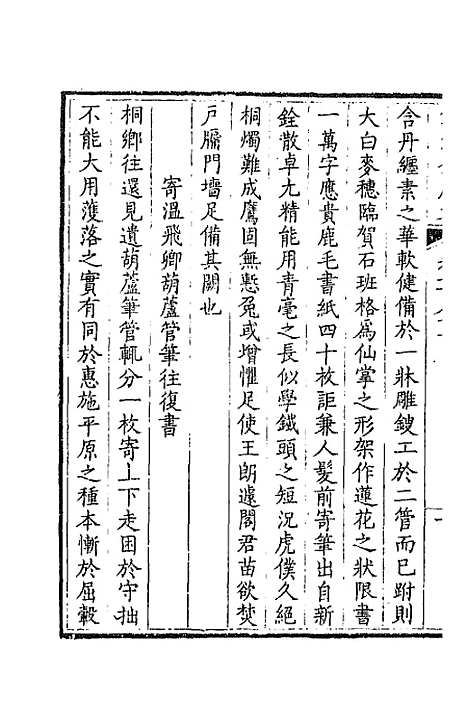 含丹纏素之華軟健備於一牀雕鎪工於二管而已跗則
大白麥穗臨賀石班格爲仙掌之形架作蓮花之狀限書
一萬字應貴鹿毛書紙四十枚詎兼人髮前寄筆出自新
銓散卓尤精能用青毫之長似學鐵頭之短況虎僕久絕
桐燭難成鷹固無慙兔或增懼足使王朗遽閣君苗欲焚
戸牖門墻足備其闕也
寄溫飛卿葫蘆管筆往復書
桐鄉往還見遺葫蘆筆管輒分一枚寄上下走困於守拙
不能大用濩落之實有同於惠施平原之種本慚於屈轂